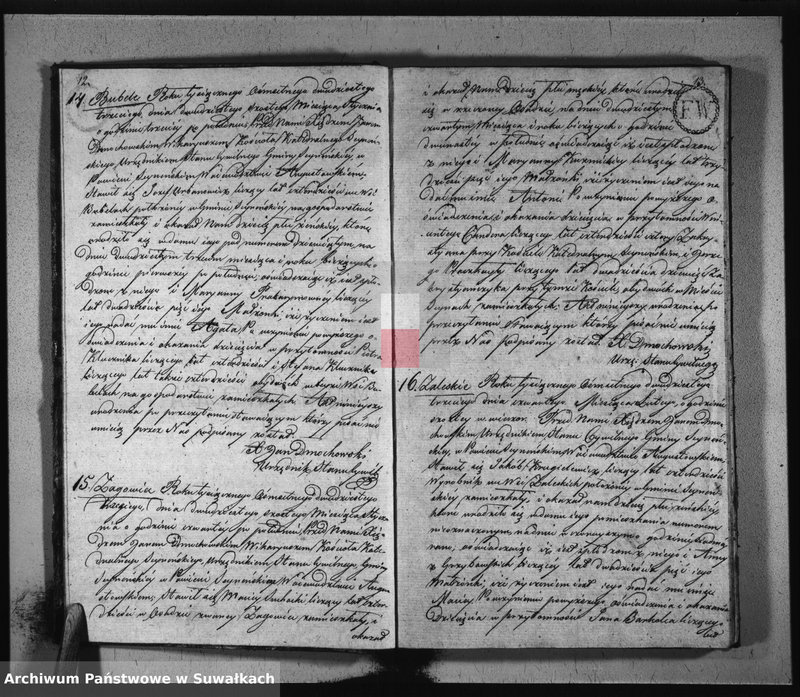 12
14. Bubele Roku tysiącznego Osmsetnego dwudziestego
trzeciego dnia dwudziestego szostego Miesiąca Stycznia
o godzinie trzeciey po południu, Przed Nami Xiędzem Janem
Dmochowskim Wikaryuszem Kościoła Katedralnego Seynen-
skiego Urzędnikiem Stanu Cywilnego Gminy Seynenskiy w
Powiecie Seynenskim Woiewodztwie Augustowskiem
Stawił się Jozef Urbanowicz liczący lat czterdzieści we Wsi
Bubelach położoney w Gminie Seynenskiey na gospodarstwie
zamieszkały i okazał Nam dziecię płci żeńskiey, ktore
urodziło się w domu iego pod numerem dziewiątym na
dniu dwudziestym trzecim miesiąca i roku bieżących o
godzinie pierwszey po południu; oświadczaiąc iż iest spło-
dzone z niego i Maryanny liczącey
lat dwadzieścia pięć iego Małżonki, iż życzeniem iest
iego nadać mu Imie Agata, Po uczynieniu powyższego o-
świadczenia i okazania dziecięcia w przytomności Piotra
Klucznika liczącego lat czterdzieści i Stefana Klucznika
liczącego lat także czterdzieści obydwoch w teyże Wsi Bu-
belach na gospodarstwie zamieszkałych Akt ninieyszy
urodzenia po przeczytaniu stawaiącym ktorzy pisać nie
umieią przez Nas podpisany został.
X. Jan Dmochowski
Urzędnik Stanu Cywil:
15. Zagowiec Roku tysiącznego Osmsetnego dwudziestego
trzeciego, dnia dwudziestego szostego Miesiąca Stycz-
nia o godzinie czwartey po południu Przed Nami Xię-
dzem Janem Dmochowskim Wikaryuszem Kościoła Kate-
dralnego Seynenskiego, Urzędnikiem Stanu Cywilnego Gminy
Seynenskiey w Powiecie Seynenskim Woiewodztwie Augu-
stowskiem, Stawił się Maciey liczący lat czter-
dzieści w Osadzie zwaney Zagowiec zamieszkały, i
okazał
i okazał Nam dziecię płci męzkiey ktore urodziło
się w rzeczoney Osadzie na dniu dwudziestym
czwartym Miesiąca i roku bieżących o godzinie
dwunastey w południe oświadczaiąc iż iest spłodzone
z niego i Maryanny liczącey lat trzy-
dzieści pięć iego Małżonki iż życzeniem iest iego na-
dać mu imie Antoni Po uczynieniu powyższego o-
świadczenia i okazania dziecięcia w przytomności Win-
centego liczącego lat czterdzieści cztery Zakry-
styana przy Kościele Katedralnym Seynenskim i Jerze-
go liczącego lat dwadzieścia dziewięć
przy tymże Kościele obydwoch w Mieście
Seynach zamieszkałych. Akt ninieyszy urodzenia po
przeczytaniu stawaiącym ktorzy pisać nie umieią
przez Nas podpisany został X. Dmochowski
Urzę: Stanu Cywilnego
FW
16. Zaleskie Roku tysiącznego Osmsetnego dwudziestego
trzeciego dnia czwartego Miesiąca Lutego, o godzinie
szostey wieczor. Przed Nami Xiędzem Janem Dmo-
chowskim Urzędnikiem Stanu Cywilnego Gminy Seynen-
skiey, w Powiecie Seynenskim Woiewodztwie Augustowskiem
Stawił się Jakob liczący lat czterdzieści
Wyrobnik we Wsi Zaleskich położoney w Gminie Seynen-
skiey zamieszkały i okazał nam dziecię płci żeńskiey
ktore urodziło się w domu iego pomieszkania numerem
nieoznaczonym, na dniu wczorayszym o godzinie siodmey z
rana, oświadczaiąc iż iest spłodzone z niego i Anny
z liczącey lat dwadzieścia pięć iego
Małżonki, iż życzeniem iest iego nadać mu imie
Maria Po uczynieniu powyższego oświadczenia i okazania
Dziecięcia w przytomności Jana liczącego
lat
Archiwum Państwowe w Suwałkach